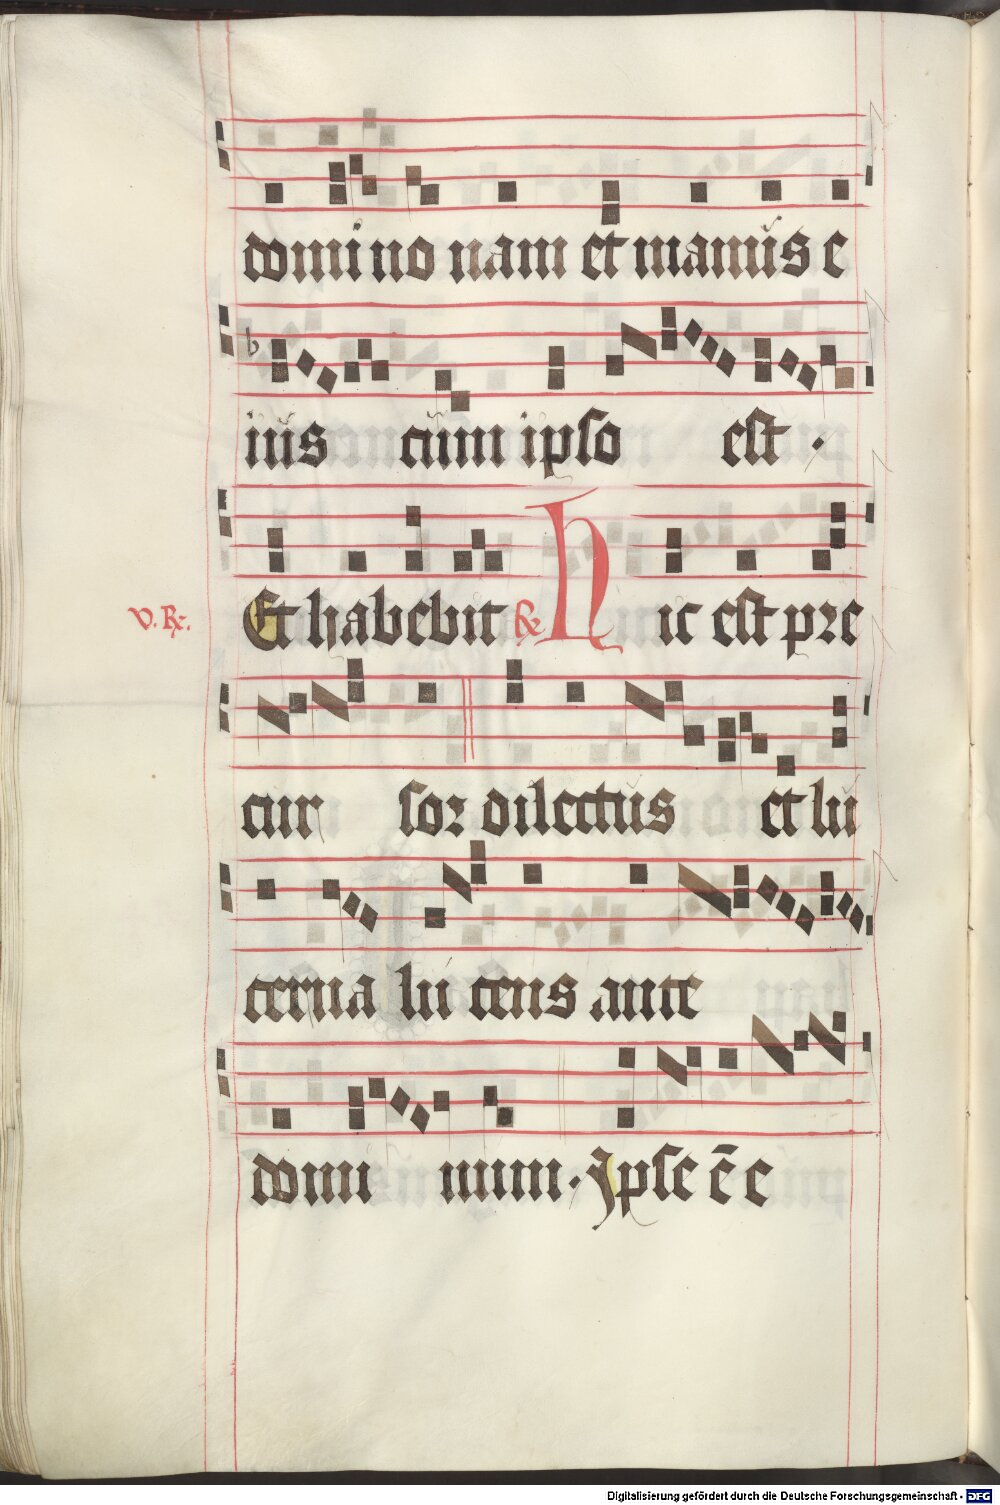 domino nam et manus e
b
ius cum ipso est.
V. R. Et habebit R Hic est pre
cur sor dilectus et lu
cerna lucens ante
domi num. Ipse ē e
Digitalisierung gefördert durch die Deutsche Forschungsgemeinschaft - DFG